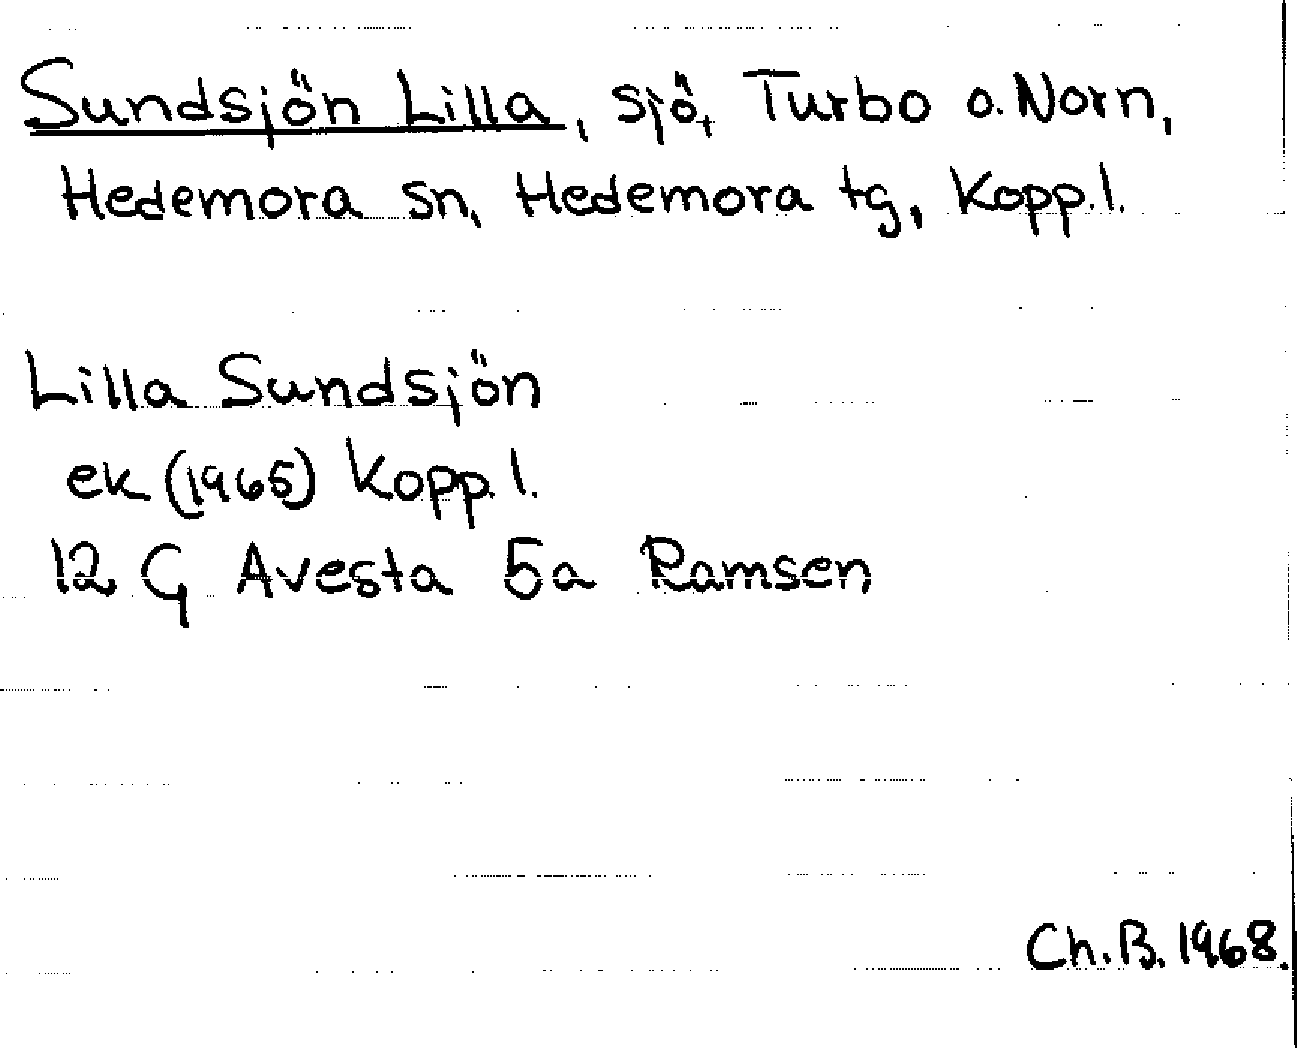 Sundsjön Lilla, sjö, Turbo o. Norn,
Hedemora sn, Hedemora tg, Kopp. l.
Lilla Sundsjön
ek (1965) Kopp. l.
12 G Avesta 5a Ramsen
Ch. B. 1968.